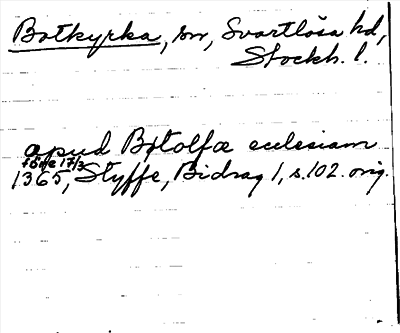 Botkyrka, sn, Svartlösa hd,
Stockh. l.
apud Botolfæ ecclesiam
före 17/3
1365, Styffe, Bidrag 1, s. 102. orig.